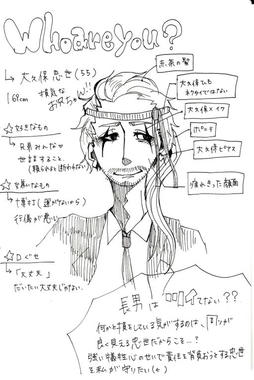 Who are you?
→ 大久保忠世(55)
169cm 損気な
お兄ちゃん!!
赤茶の髪
大久保でも
ネクタイではない
大久保×イケ
大久保ピアス
疲れきった顔面
☆好きなもの
→ 兄弟みんな♡
世話すること、
(頼られると断わらない)
☆苦手なもの
→ 博打(運がないから)
行儀が悪い
☆口ぐせ
→「大丈夫」
だいたい大丈夫じゃない。
長男は
てない??
何かと損をしている気がするのは、
良く見える忠世だからこそ…?
強い犠牲心のせいで責任を背負おうとする忠世
を私が守りたい(←)